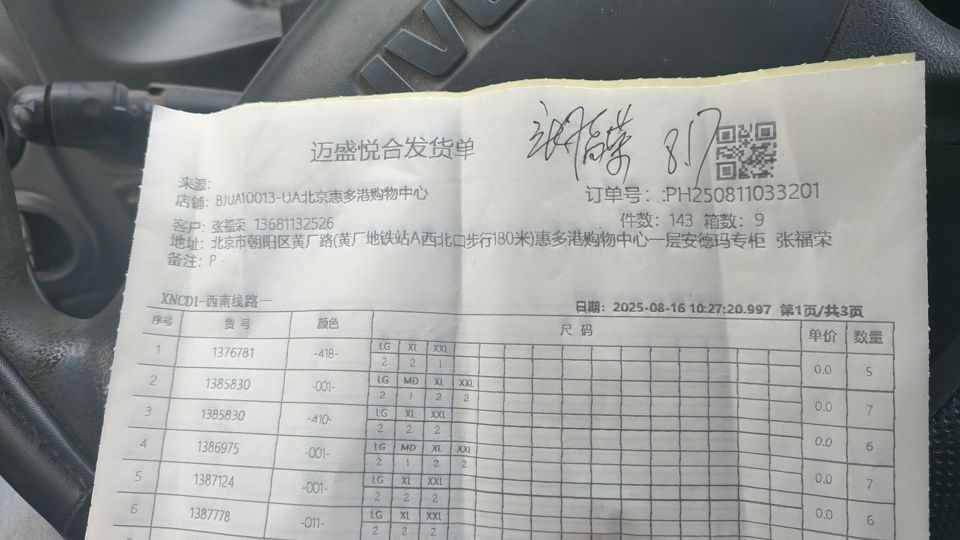 IV
迈盛悦合发货单
张福荣 8.17
来源:
店铺: BJUA10013-UA北京惠多港购物中心
订单号: :PH250811033201
客户: 张福荣 13681132526
件数: 143 箱数: 9
地址: 北京市朝阳区黄厂路(黄厂地铁站A西北口步行180米)惠多港购物中心一层安德玛专柜 张福荣
备注: P
XNCD1-西南线路一
日期: 2025-08-16 10:27:20.997 第1页/共3页
序号 货号 颜色 尺码 单价 数量
1 1376781 -418- LG XL XXL 0.0 5
2 2 1
2 1385830 -001- LG MD XL XXL 0.0 7
2 1 2 2
3 1385830 -410- LG XL XXL 0.0 6
2 2 2
4 1386975 -001- LG MD XL XXL 0.0 7
2 1 2 2
5 1387124 -001- LG XL XXL 0.0 6
2 2 2
6 1387778 -011- LG XL XXL
2 2 2